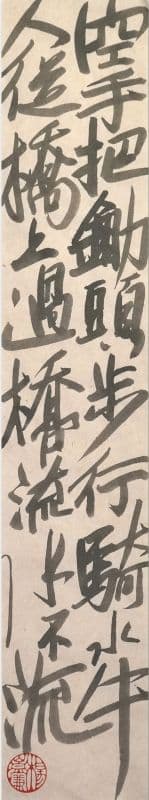 空手把鋤頭步行騎水牛
人從橋上過橋流水不流